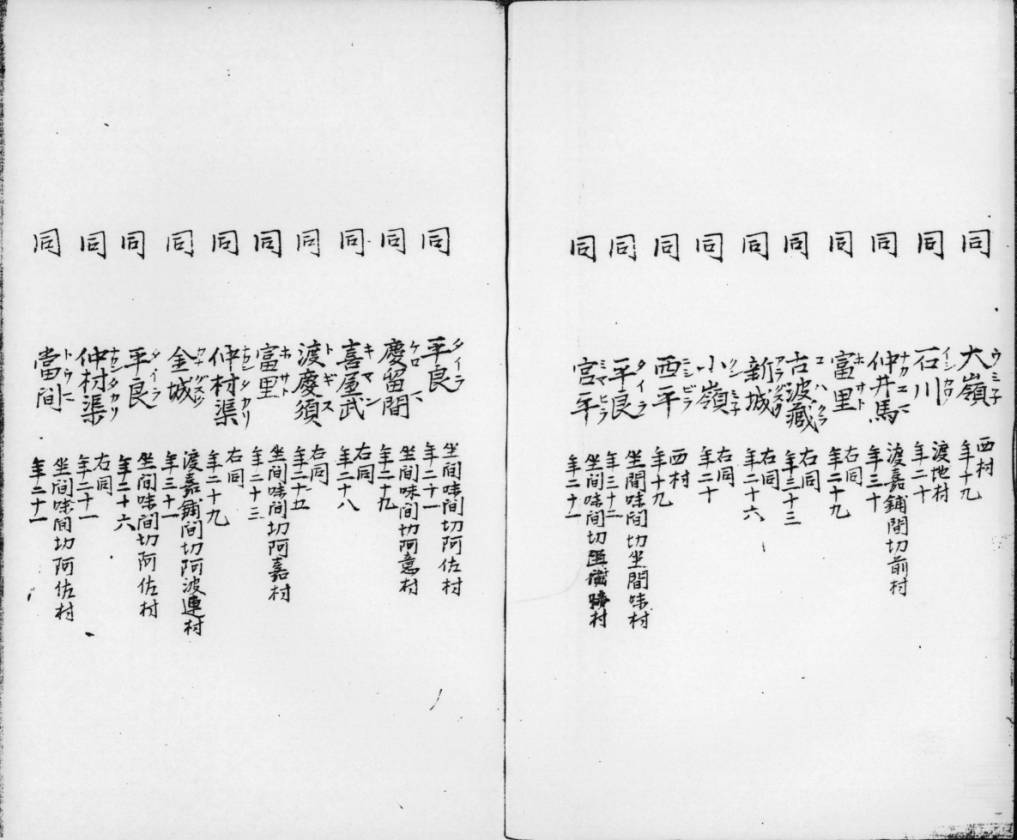 同 大嶺 ウミ子 西村 年十九
同 石川 イシカワ 渡地村 年二十
同 仲井馬 ナカエマ 渡嘉鋪間切前村 年三十
同 富里 ホサト 右同 年二十九
同 古波藏 コハクラ 右同 年三十三
同 新城 アラグスク 右同 年二十六
同 小嶺 クシミ子 右同 年二十
同 西平 ニシビラ 西村 年十九
同 平良 タイラ 坐間味間切坐間味村 年三十二
同 宮平 ミヤビラ 坐間味間切坐間味村 年二十一
同 平良 タイラ 坐間味間切阿佐村 年二十一
同 慶留間 ケロマ 坐間味間切阿意村 年二十九
同 喜屋武 キマン 右同 年二十八
同 渡慶須 トギス 右同 年二十五
同 富里 ホサト 坐間味間切阿嘉村 年二十三
同 仲村渠 ナカンタカリ 右同 年二十九
同 金城 カナグスク 渡嘉鋪間切阿波連村 年三十一
同 平良 タイラ 坐間味間切阿佐村 年二十六
同 仲村渠 ナカンタカリ 右同 年二十一
同 當間 トウマ 坐間味間切阿佐村 年二十一